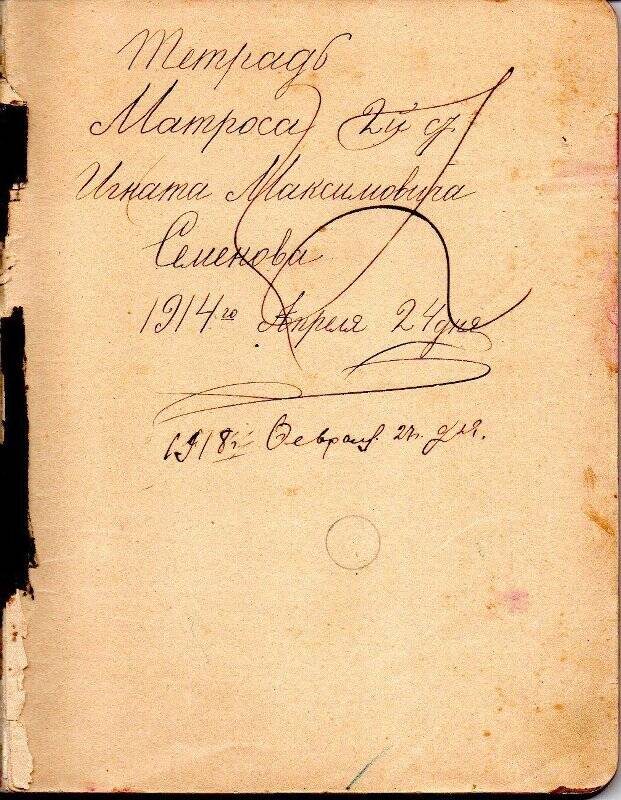 Тетрадь
Матроса 2й ст.
Игната Максимовича
Семенова
1914го Апреля 24 дня
1918г. Феврал. 27. дня.